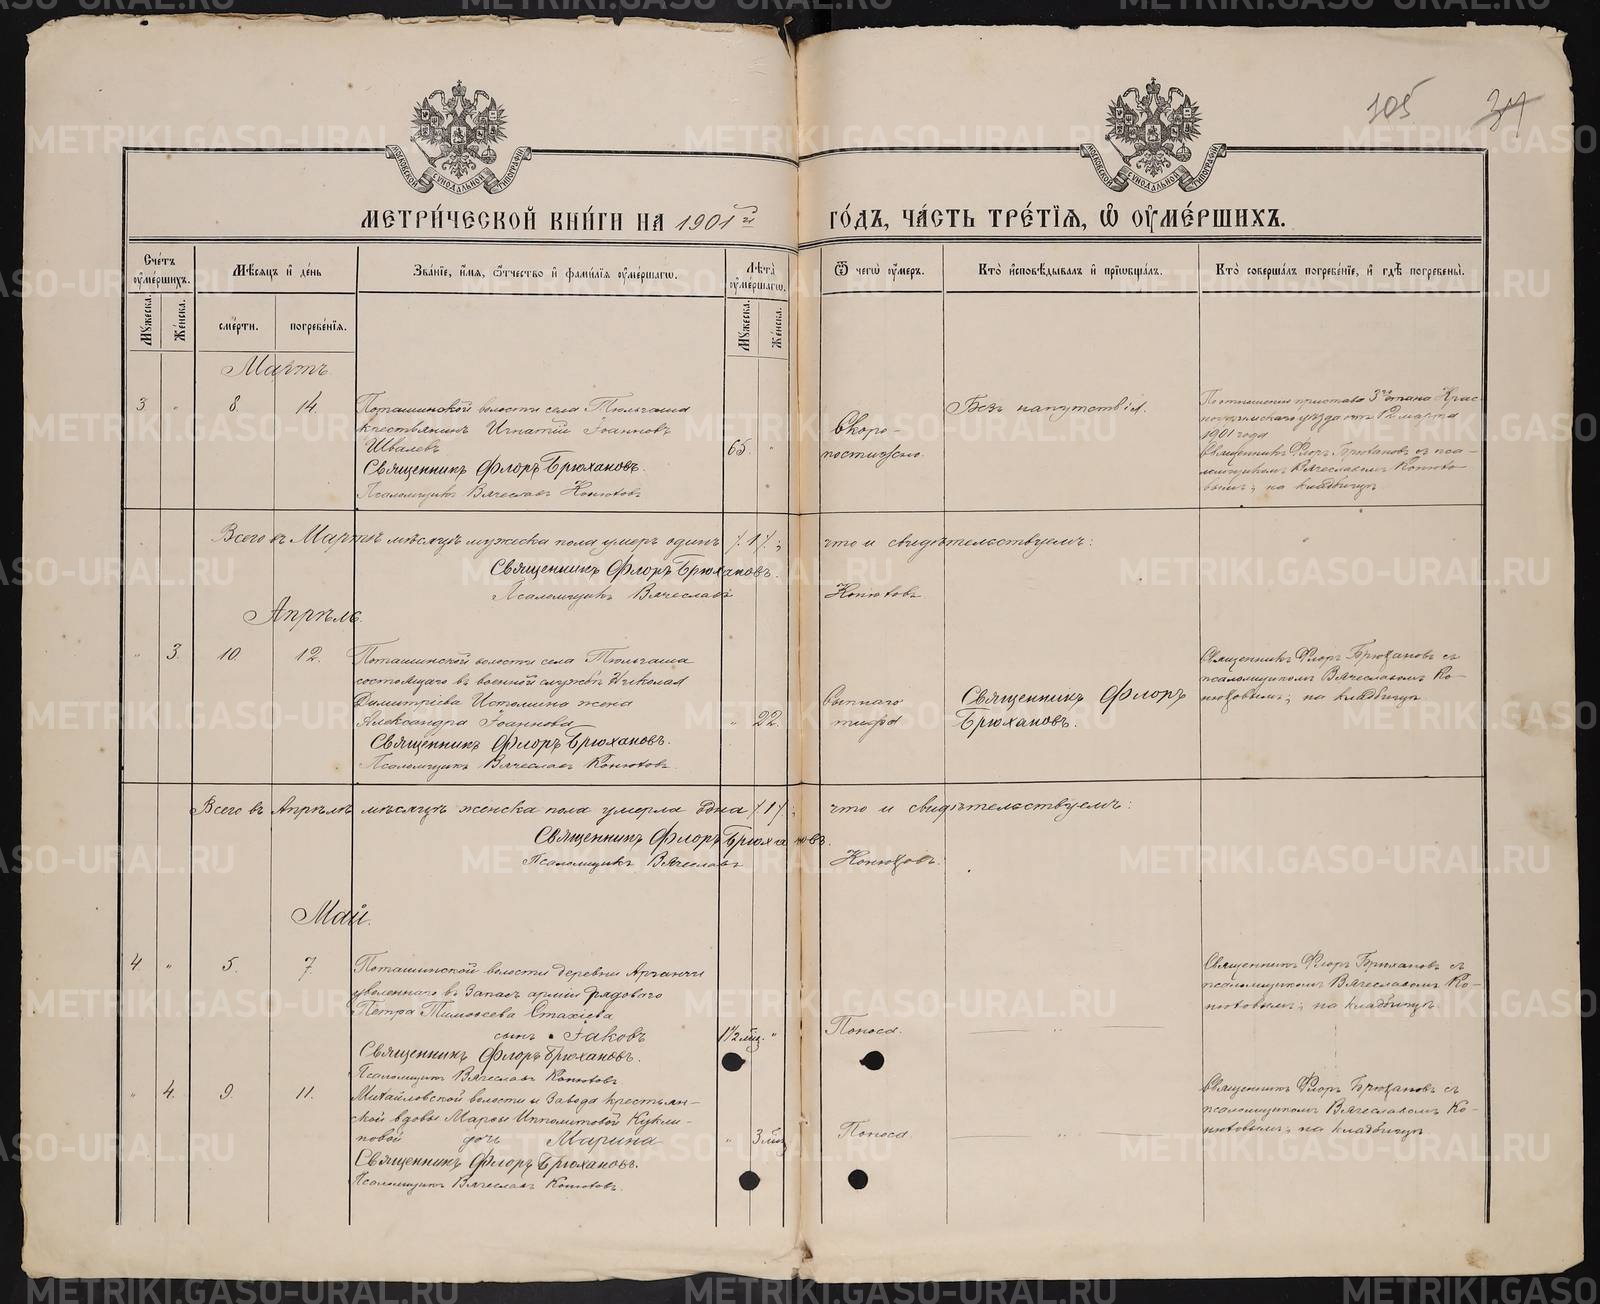 105 34
МОСКОВСКОЙ СѴНОДАЛЬНОЙ ТИПОГРАФІИ
МОСКОВСКОЙ СѴНОДАЛЬНОЙ ТИПОГРАФІИ
МЕТРИ́ЧЕСКОЙ КНИ́ГИ НА 1901й ГО́ДЪ, ЧА́СТЬ ТРЕ́ТІѦ, Ѽ ОУМЕ́РШИХЪ.
Сче́тъ оуме́ршихъ.
Мꙋжеска.
Же́нска.
Мѣ́сѧцъ и҆ де́нь
сме́рти.
погребе́нїѧ.
Зва́нїе, и҆́мѧ, ѻ҆́тчество и҆ фамі́лїѧ оуме́ршагѡ.
Лѣ́та оуме́ршагѡ.
Мꙋжеска.
Же́нска.
Ѿ чегѡ̀ оу́меръ.
Кто̀ и҆сповѣ́дывалъ и҆ прїѡбща́лъ.
Кто̀ соверша́лъ погребе́нїе, и҆ гдѣ̀ погребены̀.
Мартъ
3 " 8. 14.
Поташинской волости села Тюльгаша
крестьянинъ Игнатій Іоанновъ
Швалевъ 65. "
Священникъ Флоръ Брюхановъ.
Псаломщикъ Вячеславъ Конюховъ
Скоро-
постижно.
Безъ напутствія.
По отношенію пристава 3го стана Крас
ноуфимскаго уѣзда отъ 12 марта
1901 года
Священникъ Флоръ Брюхановъ съ пса-
ломщикомъ Вячеславомъ Конюхо
вымъ; на кладбищѣ
Всего въ Мартѣ мѣсяцѣ мужеска пола умеръ одинъ /.1/.; что и свидѣтельствуемъ:
Священникъ Флоръ Брюхановъ.
Псаломщикъ Вячеславъ Конюховъ.
Апрѣль.
" 3. 10. 12.
Поташинской волости села Тюльгаша
состоящаго въ военной службѣ Николая
Димитріева Истомина жена
Александра Іоаннова " 22.
Священникъ Флоръ Брюхановъ.
Псаломщикъ Вячеславъ Конюховъ.
тифа
Священникъ Флоръ
Брюхановъ.
Священникъ Флоръ Брюхановъ съ
псаломщикомъ Вячеславомъ Ко-
нюховымъ; на кладбищѣ
Всего въ Апрѣлѣ мѣсяцѣ женска пола умерла одна /.1/.; что и свидѣтельствуемъ:
Священникъ Флоръ Брюхановъ.
Псаломщикъ Вячеславъ Конюховъ.
Май.
4. " 5. 7.
Поташинской волости деревни
уволеннаго въ Запасъ арміи рядового
Петра Тимоѳеева Стахіева
сынъ Іаковъ 1½ мѣс. "
Священникъ Флоръ Брюхановъ.
Псаломщикъ Вячеславъ Конюховъ
Поноса.
"
Священникъ Флоръ Брюхановъ съ
псаломщикомъ Вячеславомъ Ко-
нюховымъ; на кладбищѣ.
" 4. 9. 11.
Михайловской волости и Завода крестьян-
ской вдовы Марѳы Ипполитовой Кукли-
новой дочь Марина " 3 мѣс
Священникъ Флоръ Брюхановъ.
Псаломщикъ Вячеславъ Конюховъ.
Поноса.
"
Священникъ Флоръ Брюхановъ съ
псаломщикомъ Вячеславомъ Ко-
нюховымъ; на кладбищѣ
METRIKI.GASO-URAL.RU